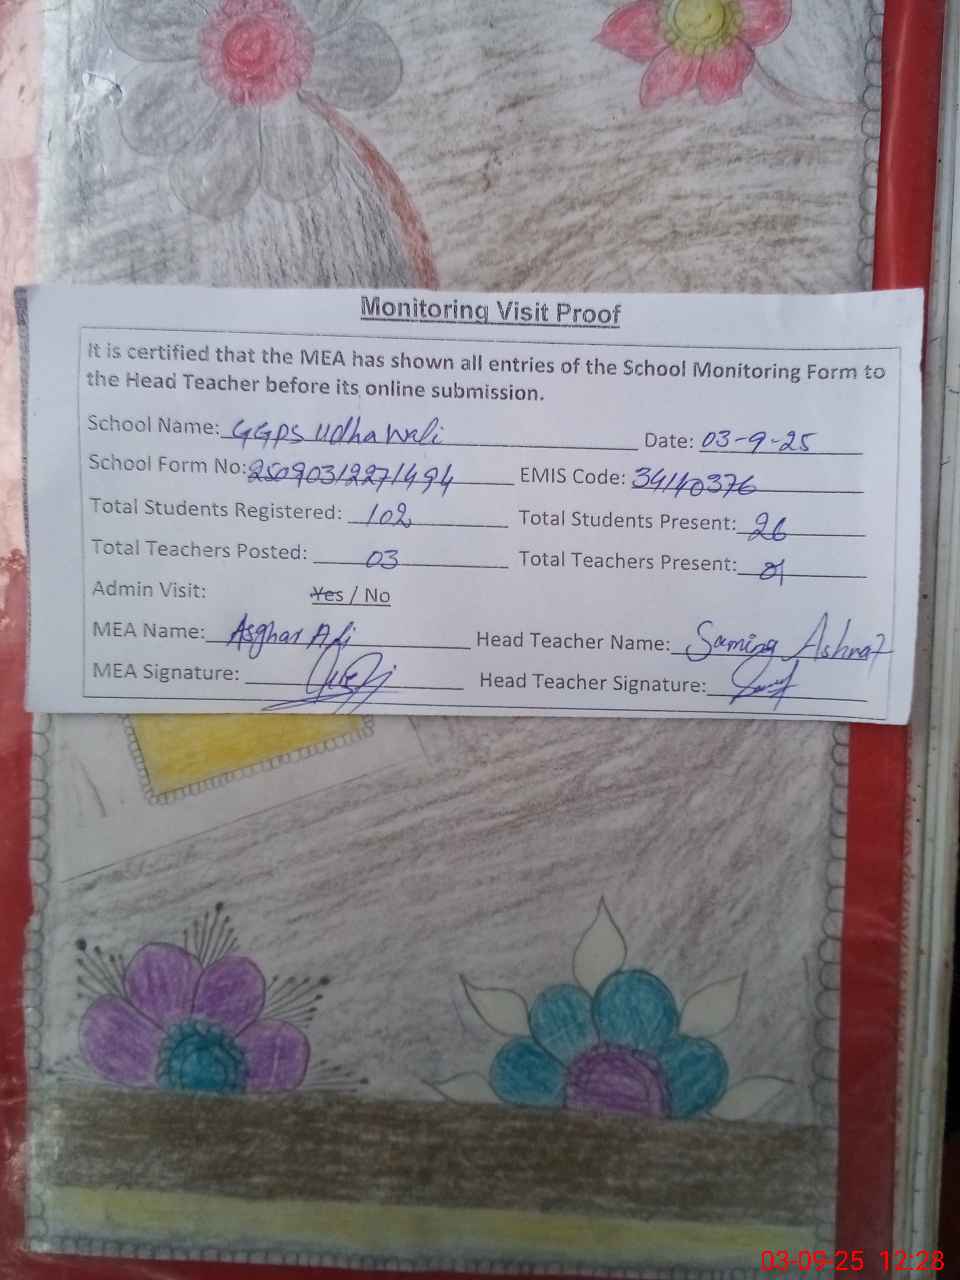 Monitoring Visit Proof
It is certified that the MEA has shown all entries of the School Monitoring Form to
the Head Teacher before its online submission.
School Name: GGPS Udha Wali Date: 03-9-25
School Form No: 25090312271494 EMIS Code: 34140376
Total Students Registered: 102 Total Students Present: 26
Total Teachers Posted: 03 Total Teachers Present: 01
Admin Visit: Yes / No
MEA Name: Asghar Ali Head Teacher Name: Samina Ashraf
MEA Signature: Head Teacher Signature:
03-09-25 12:28